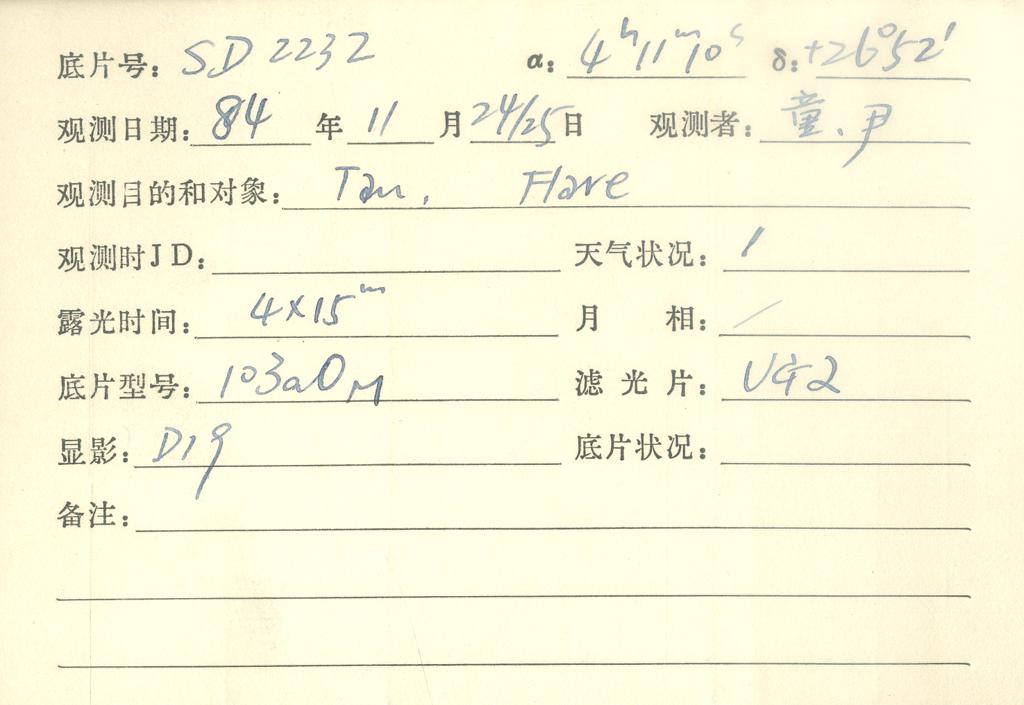 底片号: SD 2232 α: 4h11m10s δ: +26°52′
观测日期: 84 年 11 月 24/25 日 观测者: 童、尹
观测目的和对象: Tau, Flare
观测时JD: 天气状况: 1
露光时间: 4×15m 月 相: /
底片型号: 103aO 滤光片: UG2
显影: D19 底片状况:
备注: